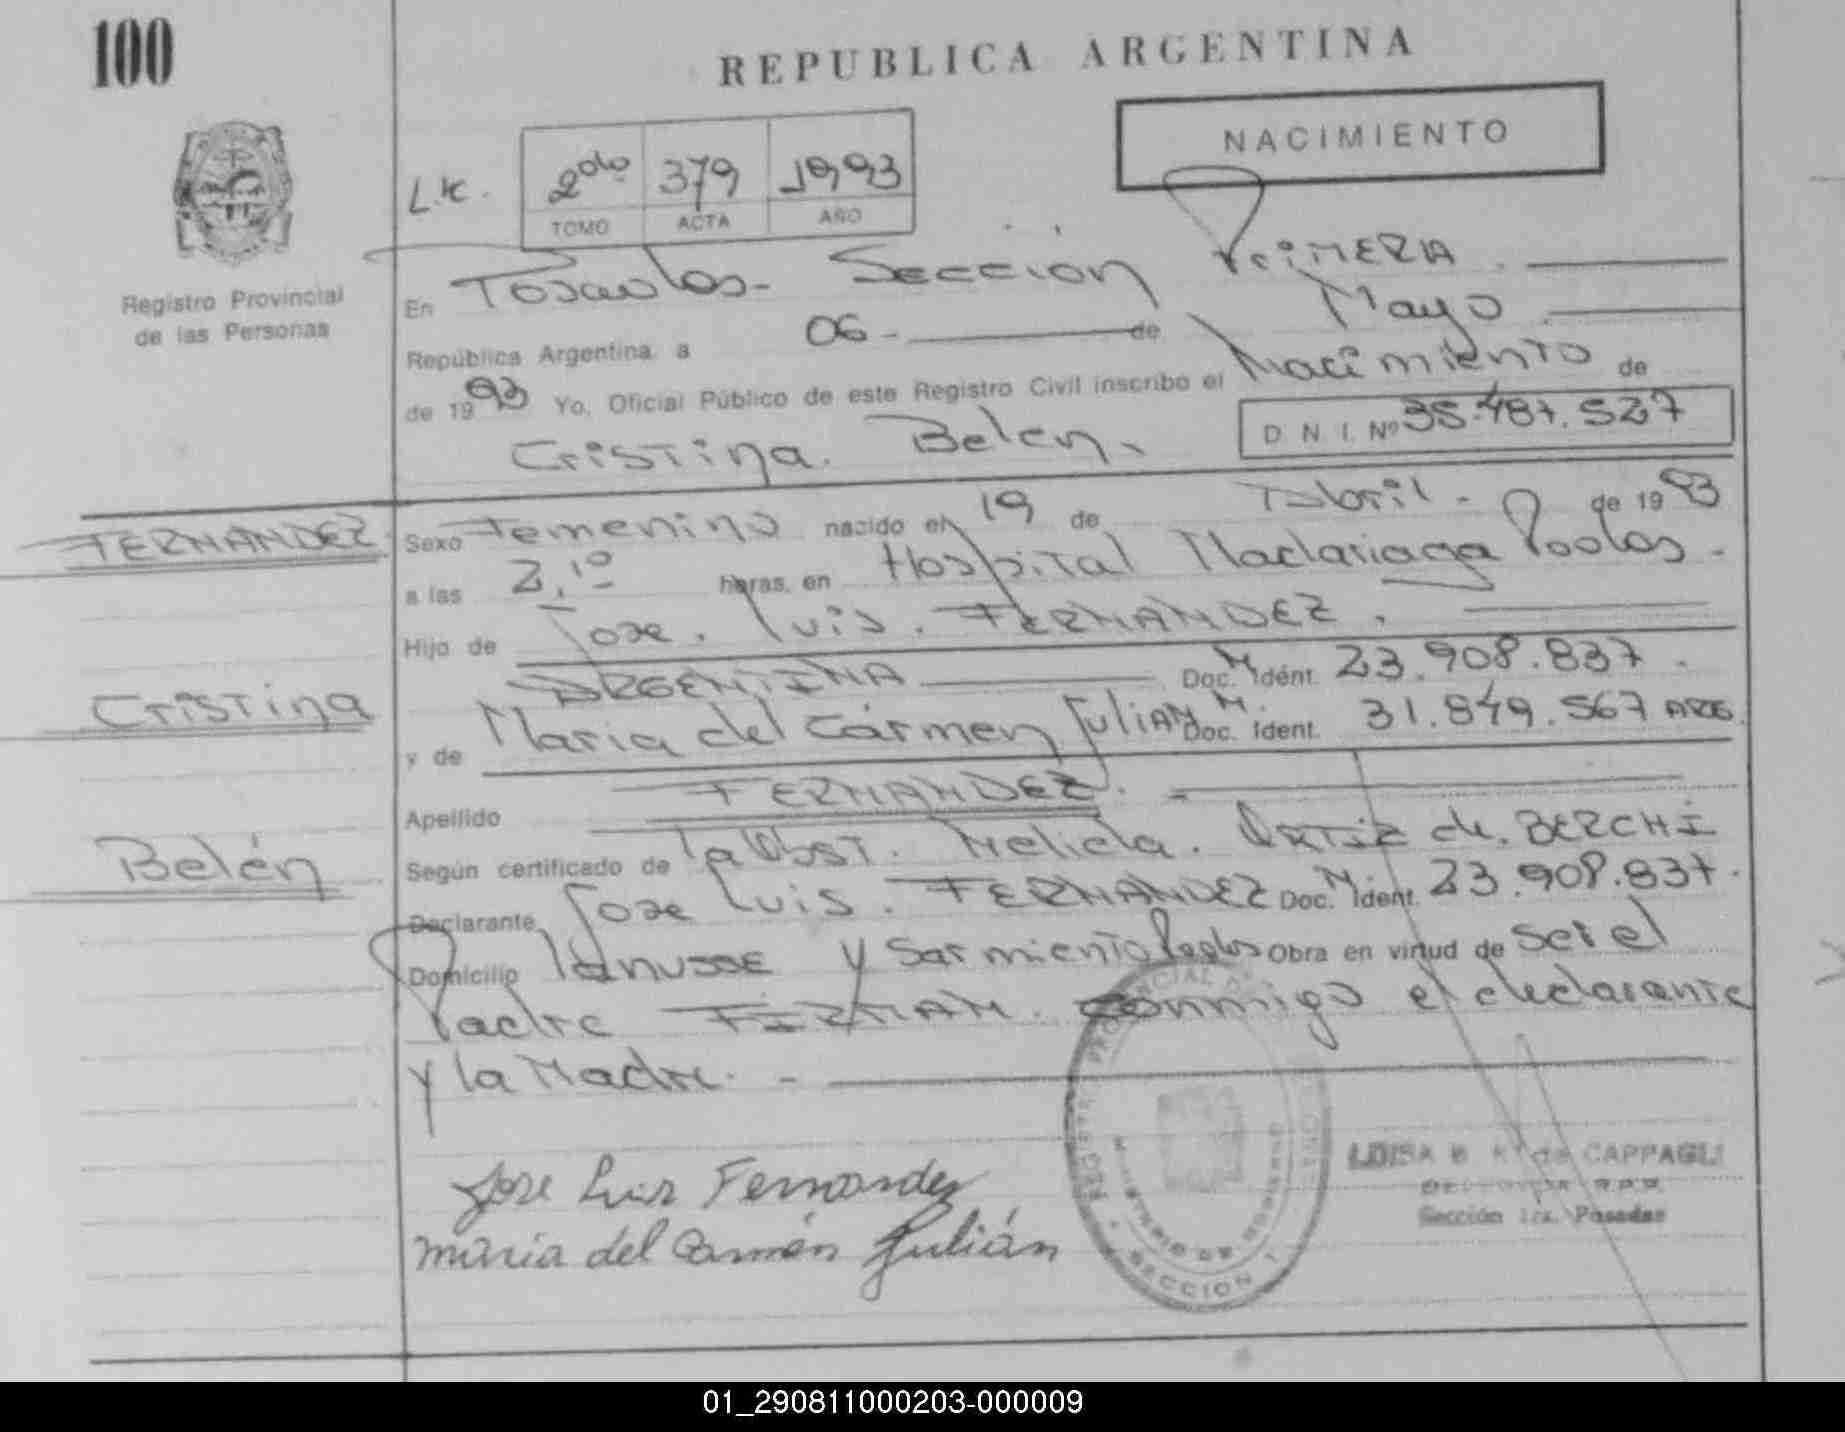 100
REPUBLICA ARGENTINA
NACIMIENTO
2do 379 1993
TOMO ACTA AÑO
Registro Provincial
de las Personas
En Posadas - Sección Primera
República Argentina, a 06 - de Mayo
de 1993 Yo, Oficial Público de este Registro Civil inscribo el Nacimiento de
Cristina Belén
D N I. Nº 35.487.527
FERNANDEZ
Sexo Femenino nacido el 19 de Abril - de 1993
a las 2,10 horas, en Hospital Madariaga Pdas -
Hijo de Jose Luis FERNANDEZ
ARGENTINA Doc. M Idént. 23.908.837
Cristina
y de Maria del Cármen JuliAN Doc. M. Ident. 31.849.567 ARG.
Apellido FERNANDEZ
Belén
Según certificado de la Obst. Nelida ORTIZ de BERCHI
Declarante Jose Luis FERNANDEZ Doc. M Ident. 23.908.837
Domicilio lanusse y Sarmiento Pdas Obra en virtud de ser el
Padre FIRMAN conmigo el declarante
y la Madre. -
Jose Luis Fernandez
maria del Carmén Julián
CAPPAGLI
Sección 1ra. Posadas
MINISTERIO DE GOBIERNO
SECCION 1
01_290811000203-000009